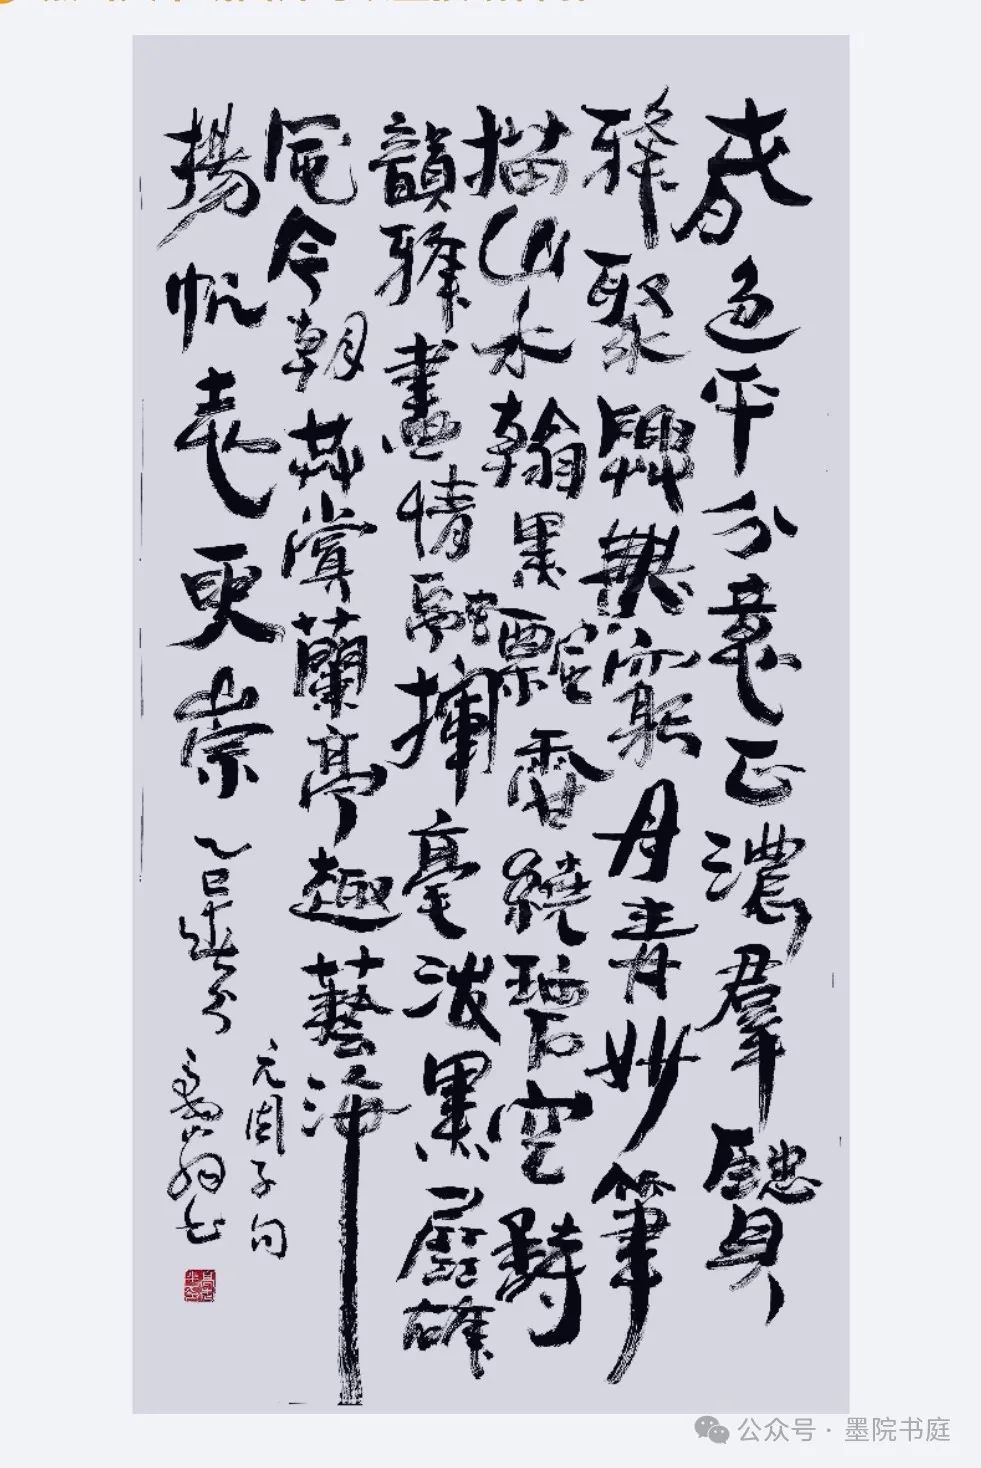 春色平分意正濃羣賢
雅聚興無窮丹青妙筆
描山水翰墨飄香繞碧空詩
韻雅畫情融揮毫潑墨展雄
風今朝共賞蘭亭趣藝海
揚帆志更崇
乙巳春分
元周子句
公众号·墨院书庭